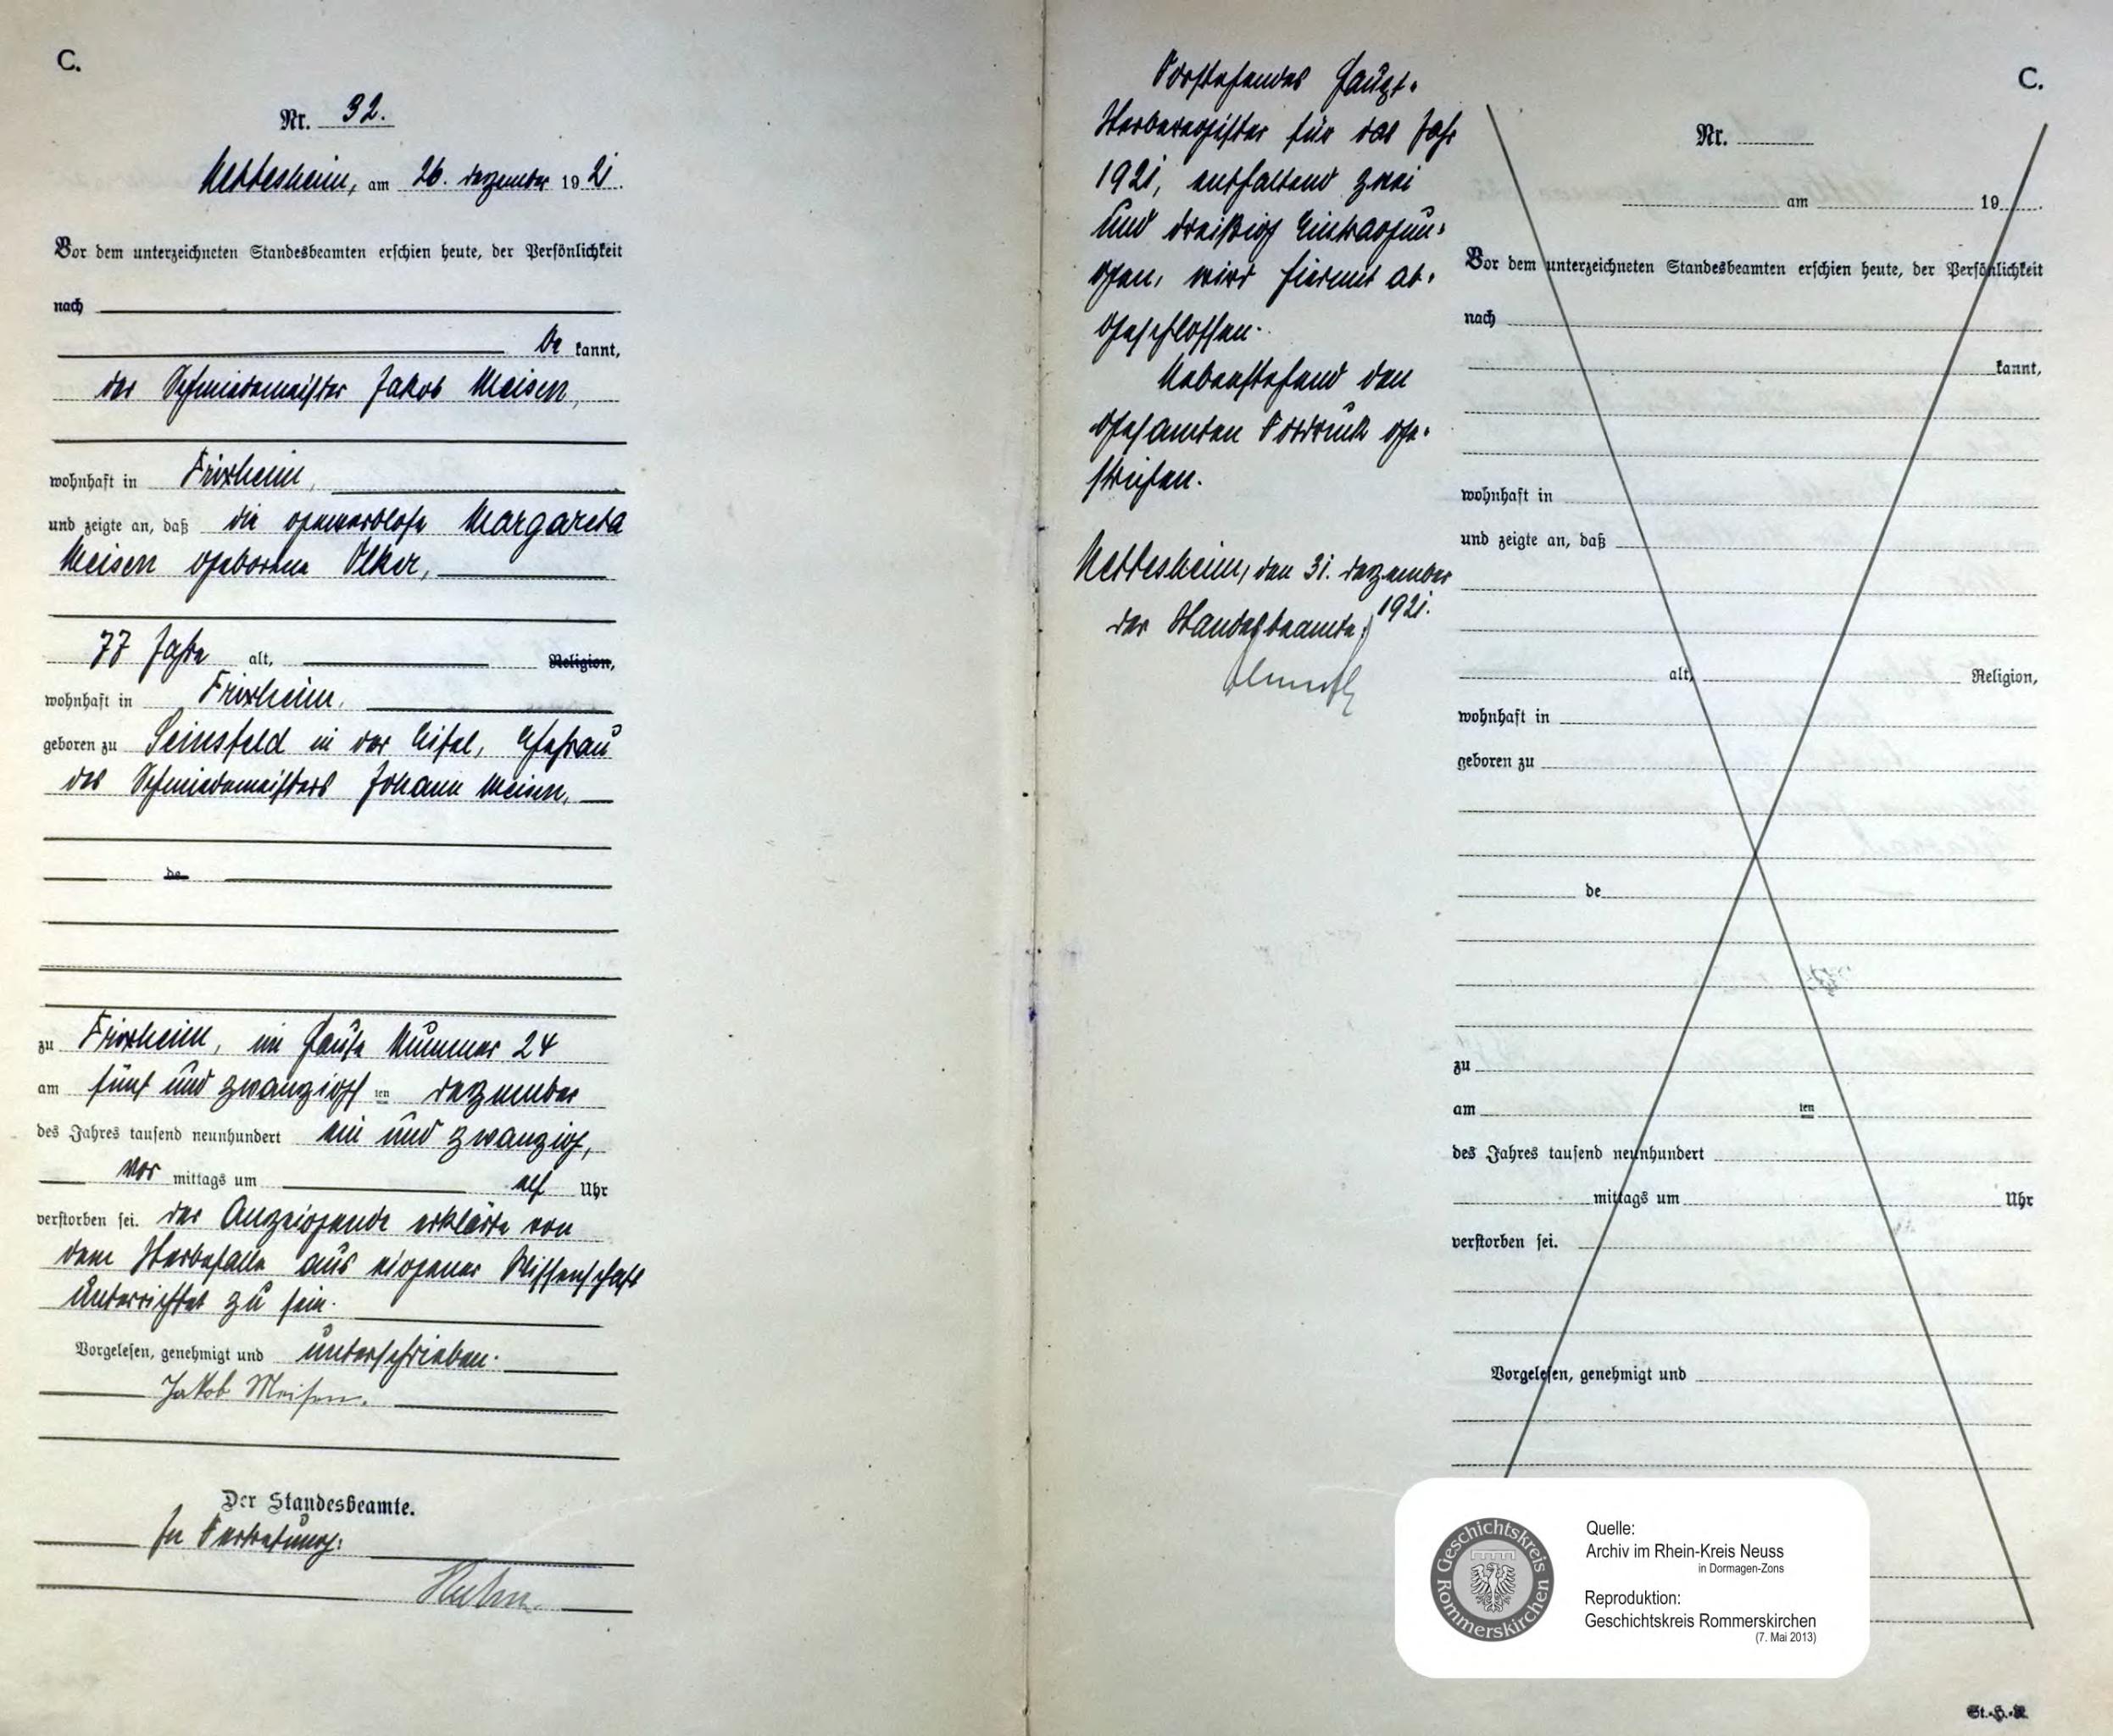 C.
Nr. 32.
Nettesheim, am 26. Dezember 1921.
Vor dem unterzeichneten Standesbeamten erschien heute, der Persönlichkeit
nach
be kannt,
der Schmiedemeister Jakob Meisen,
wohnhaft in Frixheim,
und zeigte an, daß die gewerblose Margareta
Meisen geborene Ölker,
77 Jahre alt, Religion,
wohnhaft in Frixheim,
geboren zu Seinsfeld in der Eifel, Ehefrau
des Schmiedemeisters Johann Meisen,
de
zu Frixheim, im Hause Nummer 24
am fünf und zwanzigst ten Dezember
des Jahres tausend neunhundert ein und zwanzig,
vor mittags um elf Uhr
verstorben sei. Der Anzeigende erklärte von
dem Sterbefalle aus eigener Wissenschaft
unterrichtet zu sein.
Vorgelesen, genehmigt und unterschrieben.
Jakob Meisen.
Der Standesbeamte.
In Vertretung:
Vorstehendes Haupt-
Sterberegister für das Jahr
1921, enthaltend zwei
und dreißig Eintragun-
gen, wird hiermit ab-
geschlossen.
Nebenstehend den
gesamten Vordruck ge-
strichen.
Nettesheim, den 31. Dezember
1921.
Der Standesbeamte:
C.
Nr.
am 19 .
Vor dem unterzeichneten Standesbeamten erschien heute, der Persönlichkeit
nach
kannt,
wohnhaft in
und zeigte an, daß
alt, Religion,
wohnhaft in
geboren zu
de
zu
am ten
des Jahres tausend neunhundert
mittags um Uhr
verstorben sei.
Vorgelesen, genehmigt und
Geschichtskreis
Rommerskirchen
Quelle:
Archiv im Rhein-Kreis Neuss
in Dormagen-Zons
Reproduktion:
Geschichtskreis Rommerskirchen
(7. Mai 2013)
St.-H.-R.